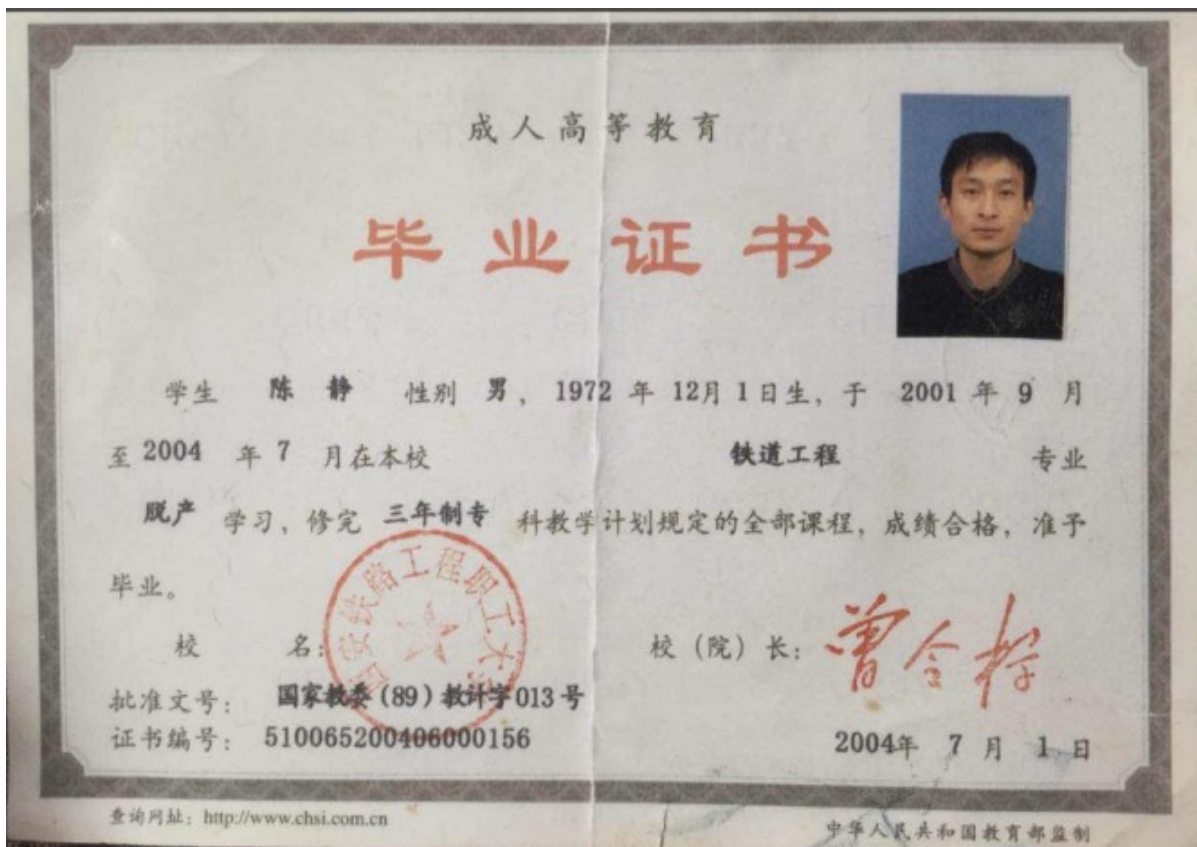 成人高等教育
毕业证书
学生 陈静 性别 男，1972 年 12月 1日生，于 2001 年 9 月
至 2004 年 7 月在本校 铁道工程 专业
脱产 学习，修完 三年制专 科教学计划规定的全部课程，成绩合格，准予
毕业。
校 名：
西安铁路工程职工大学
校（院）长：
批准文号： 国家教委(89)教计字013号
证书编号： 510065200406000156
2004年 7 月 1 日
查询网址：http://www.chsi.com.cn
中华人民共和国教育部监制